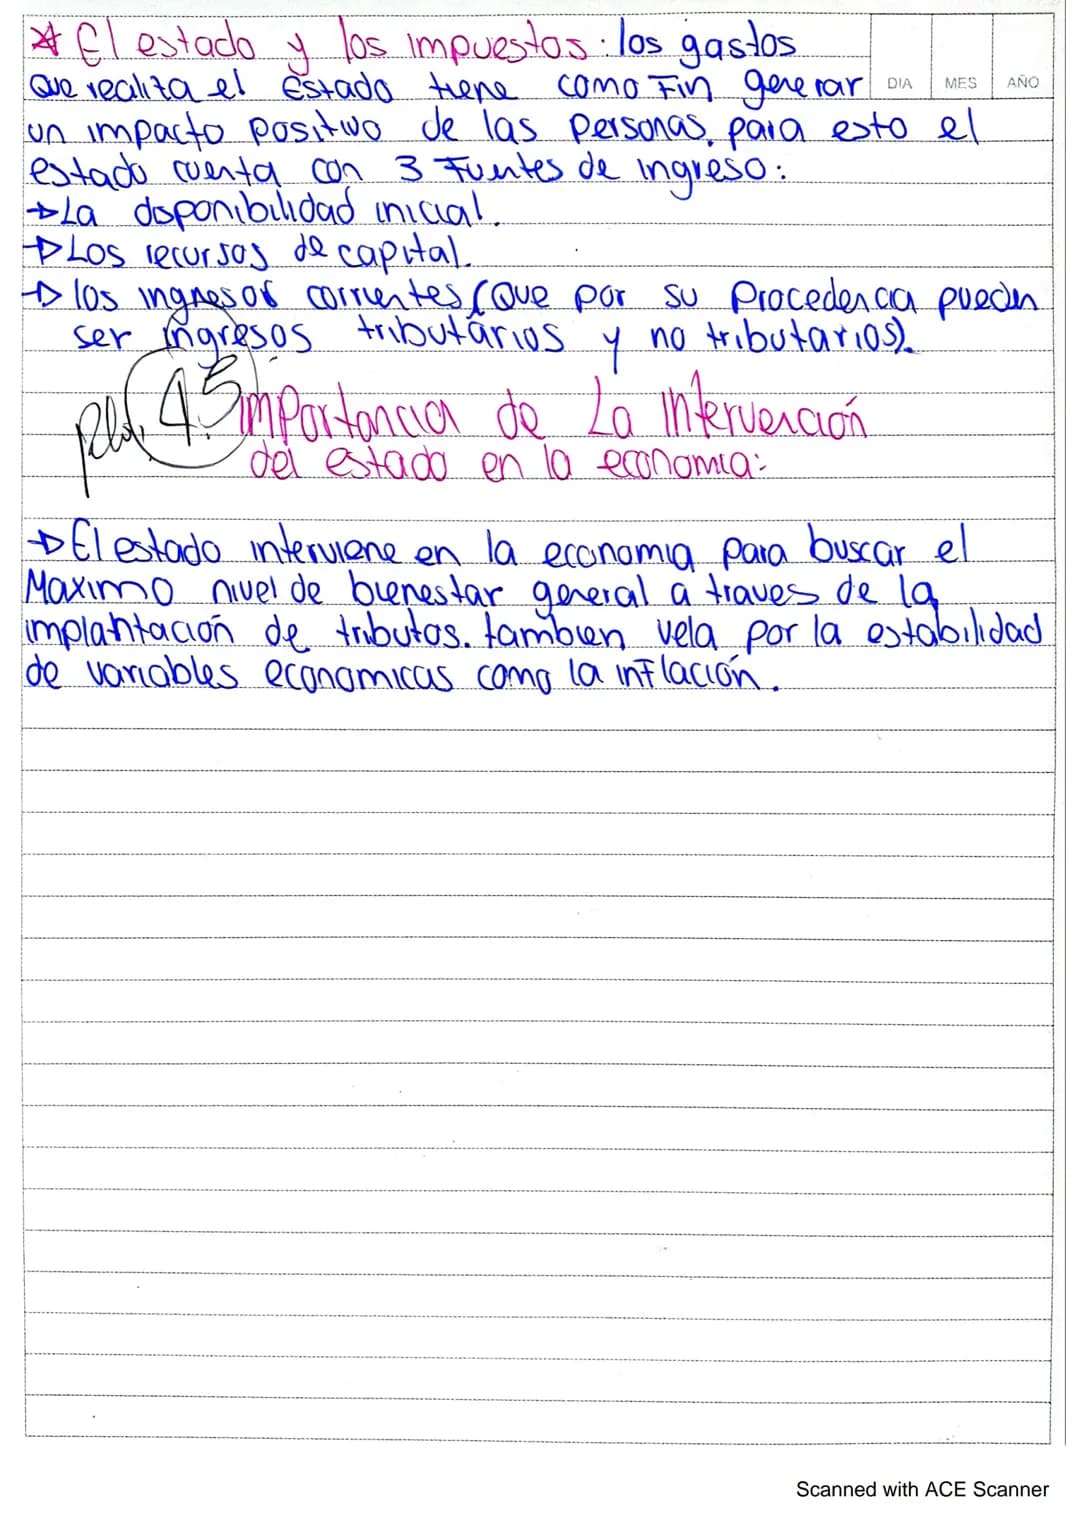 * El estado y los impuestos: los gastos
DIA MES AÑO
Que realiza el Estado tiene como Fin generar
un impacto positivo de las personas, para esto el
estado cuenta con 3 Fuentes de ingreso:
→La disponibilidad inicial.
→Los recursos de capital.
→los ingresos corrientes (Que por su Procedencia pueden
ser ingresos tributarios y no tributarios).
4.5
importancia de La intervención
del estado en la economia:
→El estado interviene en la economia para buscar el
Maximo nivel de bienestar general a traves de la
implantación de tributos. tambien vela por la estabilidad
de variables economicas como la inflación.
Scanned with ACE Scanner